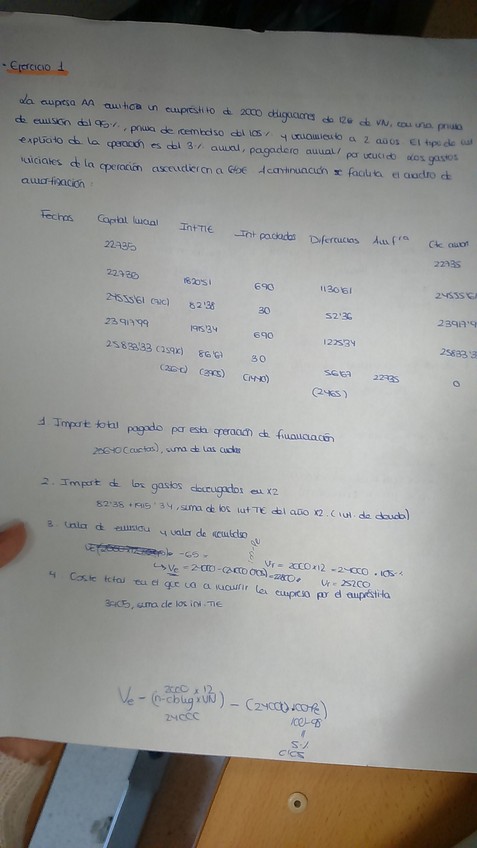 - Ejercicio 1
La empresa AA emitió un empréstito de 2000 obligaciones de 12€ de VN, con una prima
de emisión del 95%, prima de reembolso del 105% y vencimiento a 2 años El tipo de int
explícito de la operación es del 3% anual, pagadero anual/ por vencido Los gastos
iniciales de la operación ascendieron a 65€ A continuación se facilita el cuadro de
amortización:
Fechas Capital Inicial Int TIE Int pactados Diferencias Am fra Cte amor
22735 22735
22735 1820'51 690 1130'61 24555'61
24555'61 82'38 30 52'36
23917'99 1915'34 690 1225'34 23917'9
25833'33 86'61 30 56'67 22735 25833'3
(3905) (2465) 0
1. Import total pagado por esta operación de financiación
26640 (cuotas), suma de las cuotas
2. Import de los gastos devengados en X2
82'38 + 1915'34, suma de los int TIE del año X2. (int. de deuda)
3. Valor de emisión y valor de reembolso
- 65 =
↳ Ve = 24000 - (24000 · 0'05) = 22800 Vr = 2000 x 12 = 24000 · 105%
Vr = 25200
4. Coste total en el que va a incurrir la empresa por el empréstito
3905, suma de los int. TIE
2000 x 12
Ve = (nº oblig x VN) - (24000 · 100-Pe)
24000 100-95
"
5%
0'05